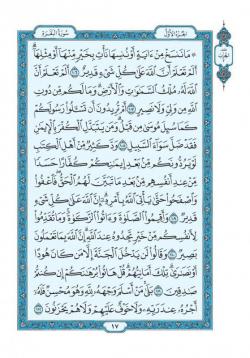 سورة البقرة
الجزء الأول
ما ننسخ من ءاية أو ننسها نأت بخير منها أو مثلها
ألم تعلم أن الله على كل شيء قدير ١٠٦ ألم تعلم أن
الله له ملك السموات والأرض وما لكم من دون
الله من ولي ولا نصير ١٠٧ أم تريدون أن تسئلوا رسولكم
كما سئل موسى من قبل ومن يتبدل الكفر بالإيمن
فقد ضل سواء السبيل ١٠٨ ود كثير من أهل الكتب
لو يردونكم من بعد إيمنكم كفارا حسدا
من عند أنفسهم من بعد ما تبين لهم الحق فاعفوا
واصفحوا حتى يأتي الله بأمره إن الله على كل شيء
قدير ١٠٩ وأقيموا الصلوة وءاتوا الزكوة وما تقدموا
لأنفسكم من خير تجدوه عند الله إن الله بما تعملون
بصير ١١٠ وقالوا لن يدخل الجنة إلا من كان هودا
أو نصرى تلك أمانيهم قل هاتوا برهنكم إن كنتم
صدقين ١١١ بلى من أسلم وجهه لله وهو محسن فله
أجره عند ربه ولا خوف عليهم ولا هم يحزنون ١١٢
١٧